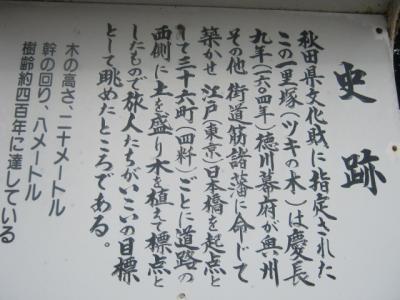 史跡
秋田県文化財に指定された
この一里塚(ツキの木)は慶長
九年(一六〇四年)徳川幕府が奥州
その他街道筋諸藩に命じて
築かせ江戸(東京)日本橋を起点と
して三十六町(四粁)ごとに道路の
両側に土を盛り木を植えて標点と
したもので旅人たちがいこいの目標
として眺めたところである。
木の高さ、二十メートル
幹の回り、八メートル
樹齢約四百年に達している